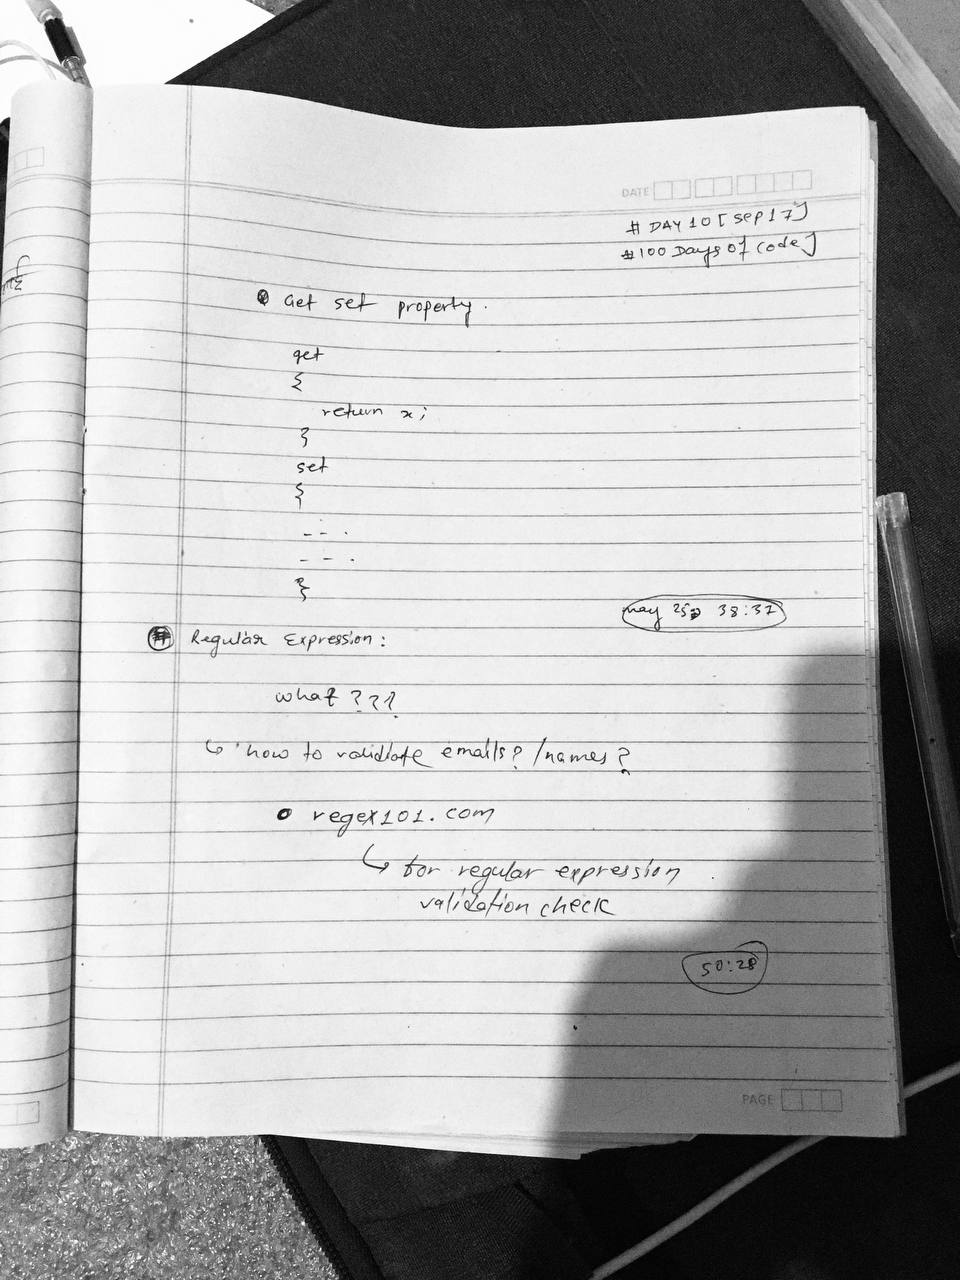 DATE
# DAY 10 [sep 17]
#100 Days of code]
Get set property.
get
{
return x;
}
set
{
- - .
- - .
}
may 25, 38:37
# Regular Expression:
what ???
↳ how to validate emails? /names?
regex101.com
↳ for regular expression
validation check
50:28
PAGE